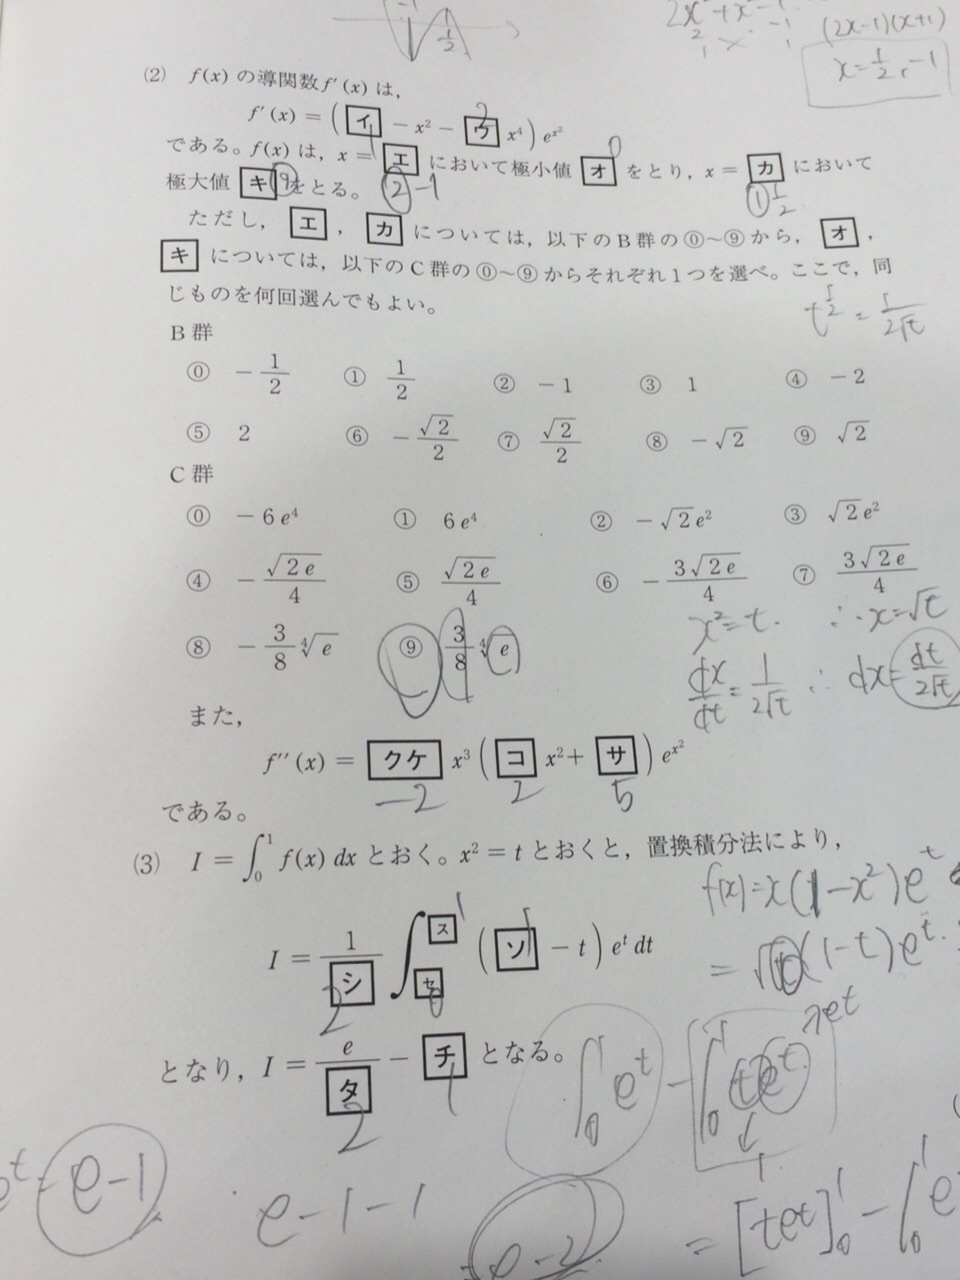 2x²+x-1
(2x-1)(x+1)
x=1/2, -1
(2) f(x) の導関数 f'(x) は,
f'(x) = ( イ - x² - ウ x⁴ ) e^{x²}
である。f(x) は, x = エ において極小値 オ をとり, x = カ において
極大値 キ をとる。
⑨ ② -1 ① 1/2
ただし, エ , カ については, 以下の B 群の ⓪~⑨ から, オ ,
キ については, 以下の C 群の ⓪~⑨ からそれぞれ 1 つを選べ。ここで, 同
じものを何回選んでもよい。
t^{1/2} = 1/2√t
B 群
⓪ -1/2 ① 1/2 ② -1 ③ 1 ④ -2
⑤ 2 ⑥ -√2/2 ⑦ √2/2 ⑧ -√2 ⑨ √2
C 群
⓪ -6e⁴ ① 6e⁴ ② -√2e² ③ √2e²
④ -√2e/4 ⑤ √2e/4 ⑥ -3√2e/4 ⑦ 3√2e/4
⑧ -3/8 ⁴√e ⑨ 3/8 ⁴√e
x²=t. ∴x=√t
dx/dt = 1/2√t ∴ dx = dt/2√t
また,
f''(x) = クケ x³ ( コ x² + サ ) e^{x²}
-2 2 5
である。
(3) I = ∫₀¹ f(x) dx とおく。x² = t とおくと, 置換積分法により,
f(x)=x(1-x²)e^t
I = 1/シ ∫_セ^ス ( ソ - t ) e^t dt
2 0 1 1
= √t(1-t)e^t
となり, I = e/タ - チ となる。
2 1
∫₀¹ e^t - ∫₀¹ te^t
e-1
e-1-1
e-2
= [te^t]₀¹ - ∫₀¹ e